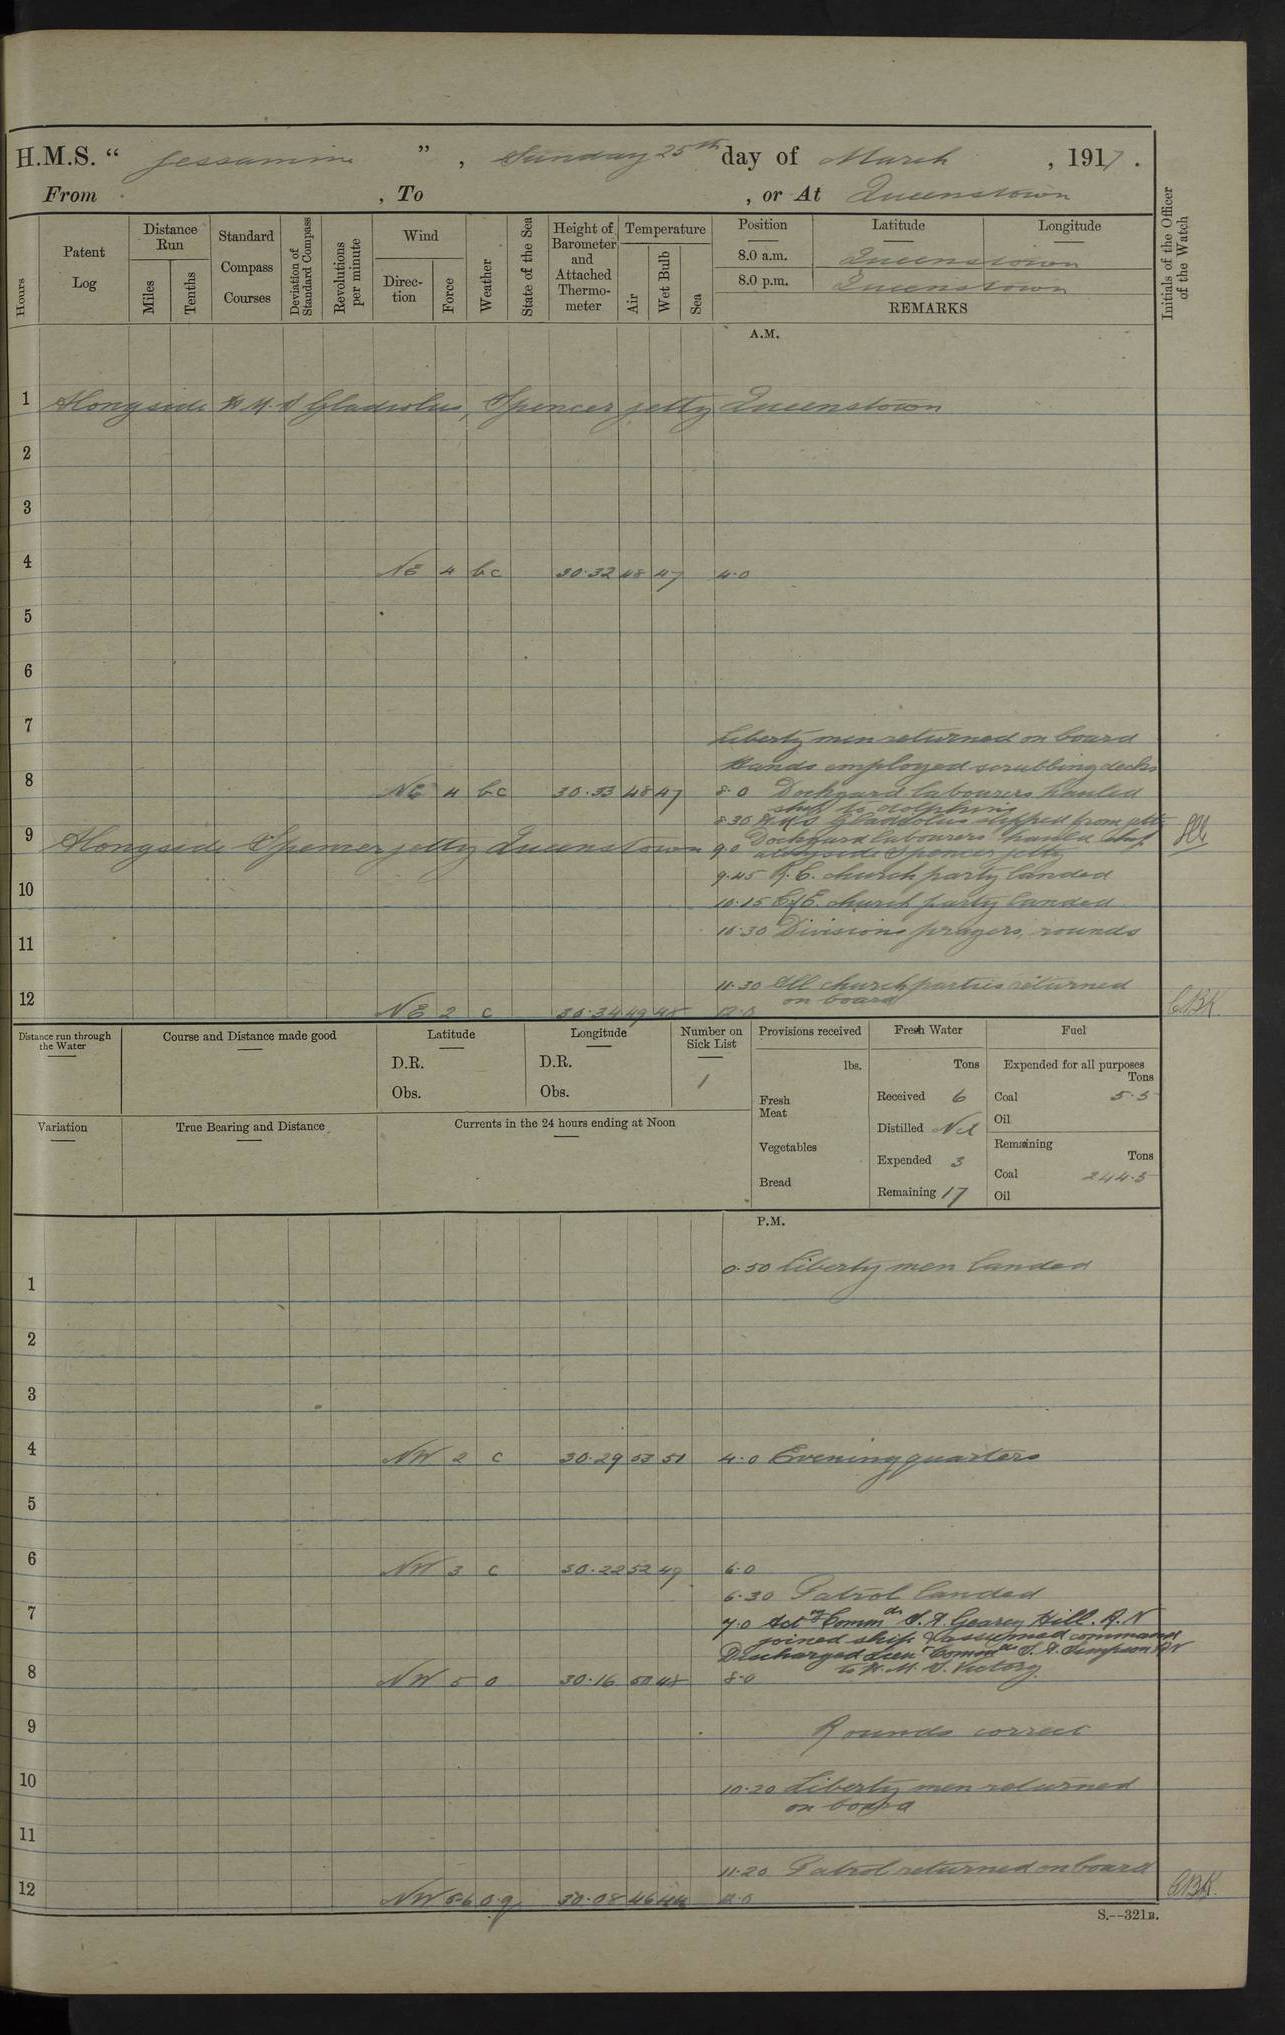 H.M.S. “ Jessamine ” , Sunday 25th day of March , 1917 .
From , To , or At Queenstown
Hours
Patent Log
Distance Run
Miles
Tenths
Standard Compass Courses
Deviation of Standard Compass
Revolutions per minute
Wind
Direction
Force
Weather
State of the Sea
Height of Barometer and Attached Thermometer
Temperature
Air
Wet Bulb
Sea
Position
Latitude
Longitude
8.0 a.m. Queenstown
8.0 p.m. Queenstown
REMARKS
Initials of the Officer of the Watch
A.M.
1 Alongside H.M.S Gladiolus, Spencer jetty Queenstown
2
3
4 NE 4 bc 30.32 48 47 4.0
5
6
7
Liberty men returned on board
Hands employed scrubbing decks
8 NE 4 bc 30.33 48 47 8.0 Dockyard labourers hauled
ship to dolphins
8.30 H.M.S Gladiolus slipped from jetty
9 Alongside Spencer jetty Queenstown 9.0 Dockyard labourers hauled ship
alongside Spencer jetty
9.45 R.C. church party landed
10 10.15 C of E. church party landed
10.30 Divisions prayers, rounds
11
11.30 All church parties returned
on board
12 NE 2 c 30.34 49 48 12.0
Distance run through the Water
Course and Distance made good
Latitude
D.R.
Obs.
Longitude
D.R.
Obs.
Number on Sick List
1
Provisions received
lbs.
Fresh Meat
Vegetables
Bread
Fresh Water
Tons
Received 6
Distilled Nil
Expended 3
Remaining 17
Fuel
Expended for all purposes
Tons
Coal 5.5
Oil
Remaining
Tons
Coal 244.5
Oil
Variation
True Bearing and Distance
Currents in the 24 hours ending at Noon
P.M.
0.50 Liberty men landed
1
2
3
4 NW 2 c 30.29 53 51 4.0 Evening quarters
5
6 NW 3 c 30.22 52 49 6.0
6.30 Patrol landed
7 7.0 Actg Commdr S.A. Geary Hill. R.N
joined ship & assumed command
Discharged Lieut Commdr S.A. Simpson RN
to H.M.S. Victory
8 NW 5 o 30.16 50 48 8.0
9 Rounds correct
10 10.20 Liberty men returned
on board
11
11.20 Patrol returned on board
12 NW 5-6 o.q 30.08 46 44 12.0
S.--321B.